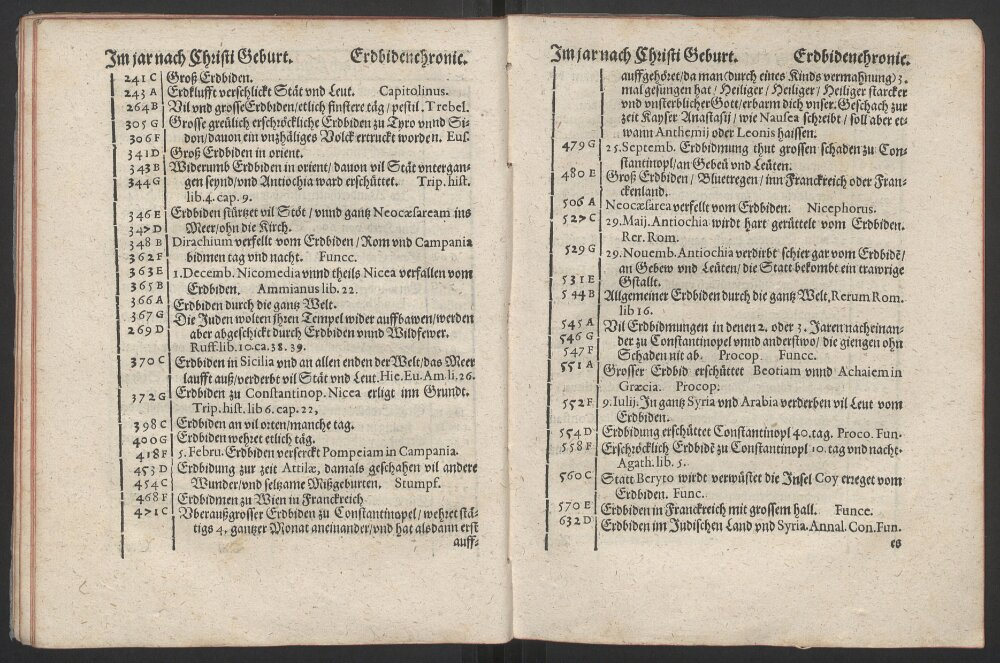 Im jar nach Christi Geburt. Erdbidenchronic.
241 C Groß Erdbiden.
243 A Erdklufft verschlickt Stät vnd Leut. Capitolinus.
264 B Vil vnd grosse Erdbiden/etlich finstere täg/pestil. Trebel.
305 G Grosse greülich erschröckliche Erdbiden zu Tyro vnnd Si-
306 F don/dauon ein vnzhäliges Volck ertruckt worden. Eus.
341 D Groß Erdbiden in orient.
343 B Widerumb Erdbiden in orient/dauon vil Stät vntergan-
344 G gen seynd/vnd Antiochia ward erschüttet. Trip. hist.
lib. 4. cap. 9.
346 E Erdbiden stürtzet vil Stöt/vnnd gantz Neocæsaream ins
347 D Meer/ohn die Kirch.
348 B Dirachium verfellt vom Erdbiden/Rom vnd Campania
362 F bidmen tag vnd nacht. Funcc.
363 E 1. Decemb. Nicomedia vnnd theils Nicea verfallen vom
365 B Erdbiden. Ammianus lib. 22.
366 A Erdbiden durch die gantz Welt.
367 G Die Juden wolten jhren Tempel wider auffbawen/werden
269 D aber abgeschickt durch Erdbiden vnnd Wildfewer.
Ruff. lib. 10. ca. 38. 39.
370 C Erdbiden in Sicilia vnd an allen enden der Welt/das Meer
laufft auß/verderbt vil Stät vnd Leut. Hie. Eu. Am. li. 26.
372 G Erdbiden zu Constantinop. Nicea erligt inn Grundt.
Trip. hist. lib 6. cap. 22,
398 C Erdbiden an vil orten/manche tag.
400 G Erdbiden wehret etlich täg.
418 F 5. Febru. Erdbiden versenckt Pompeiam in Campania.
453 D Erdbidung zur zeit Attilæ, damals geschahen vil andere
454 C Wunder/vnd seltzame Mißgeburten. Stumpf.
468 F Erdbidmen zu Wien in Franckreich
471 C Vberaußgrosser Erdbiden zu Constantinopel/wehret stä-
tigs 4. gantzer Monat aneinander/vnd hat alsdann erst
auff-
Im jar nach Christi Geburt. Erdbidenchronic.
auffgehöret/da man (durch eines Kinds vermahnung) 3.
mal gesungen hat/Heiliger/Heiliger/Heiliger starcker
vnd vnsterblicher Gott/erbarm dich vnser. Geschach zur
zeit Kayser Anastasij/wie Nausea schreibt/soll aber et-
wann Anthemij oder Leonis haissen.
479 G 25. Septemb. Erdbidmung thut grossen schaden zu Con-
stantinopl/an Gebeü vnd Leüten.
480 E Groß Erdbiden/Bluetregen/inn Franckreich oder Fran-
ckenland.
506 A Neocæsarea verfellt vom Erdbiden. Nicephorus.
527 C 29. Maij. Antiochia wirdt hart gerüttelt vom Erdbiden.
Rer. Rom.
529 G 29. Nouemb. Antiochia verdirbt schier gar vom Erdbidē/
an Gebew vnd Leüten/die Statt bekombt ein trawrige
531 E Gstallt.
544 B Allgemeiner Erdbiden durch die gantz Welt, Rerum Rom.
lib 16.
545 A Vil Erdbidmungen in denen 2. oder 3. Jaren nacheinan-
546 G der zu Constantinopel vnnd anderstwo/die giengen ohn
547 F Schaden nit ab. Procop. Funcc.
551 A Grosser Erdbid erschüttet Beotiam vnnd Achaiem in
Græcia. Procop.
552 F 9. Iulij. In gantz Syria vnd Arabia verderben vil Leut vom
Erdbiden.
554 D Erdbidung erschüttet Constantinopl 40. tag. Proco. Fun.
558 F Erschröcklich Erdbidē zu Constantinopl 10. tag vnd nacht.
Agath. lib. 5.
560 C Statt Beryto wirdt verwüstet die Insel Coy erieget vom
Erdbiden. Func.
570 E Erdbiden in Franckreich mit grossem hall. Funcc.
632 D Erdbiden im Jüdischen Land vnd Syria. Annal. Con. Fun.
es